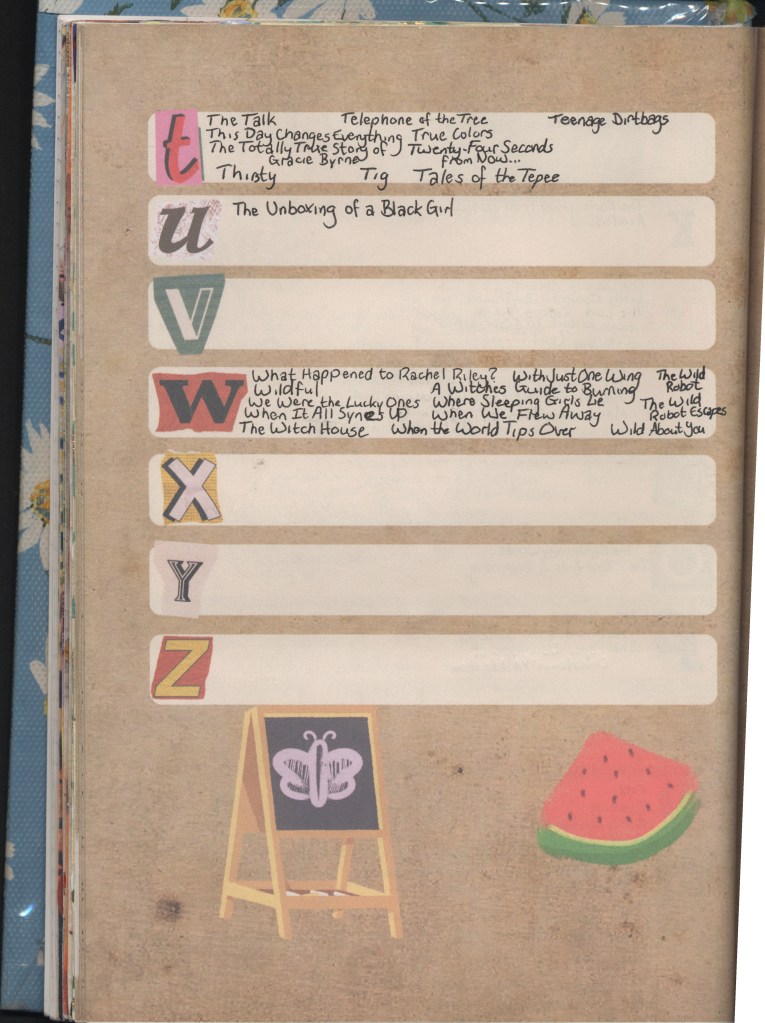 t
The Talk Telephone of the Tree Teenage Dirtbags
This Day Changes Everything True Colors
The Totally True Story of Gracie Byrne Twenty-Four Seconds from Now...
Thirsty Tig Tales of the Tepee
u
The Unboxing of a Black Girl
V
W
What Happened to Rachel Riley? With Just One Wing The Wild Robot
Wildful A Witches Guide to Burning
We Were the Lucky Ones Where Sleeping Girls Lie The Wild Robot Escapes
When It All Syncs Up When We Flew Away
The Witch House When the World Tips Over Wild About You
X
Y
Z